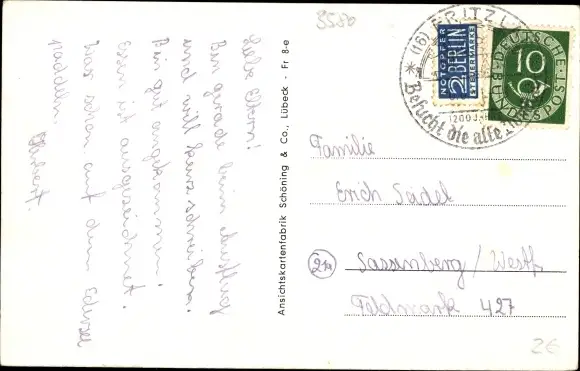 Liebe Eltern!
Bin gerade beim
und will kurz schreiben.
Bin gut angekommen!
Essen ist ausgezeichnet.
War schon auf dem Edersee
paddeln. Hubert.
Ansichtskartenfabrik Schöning & Co., Lübeck · Fr 8-e
8586
(16) FRITZL
Besucht die alte
1200 JAH
NOTOPFER
2 BERLIN
STEUERMARKE
DEUTSCHE
BUNDESPOST
10
Familie
Erich Seidel
21a Sassenberg / Westf.
Feldmark 427
2€